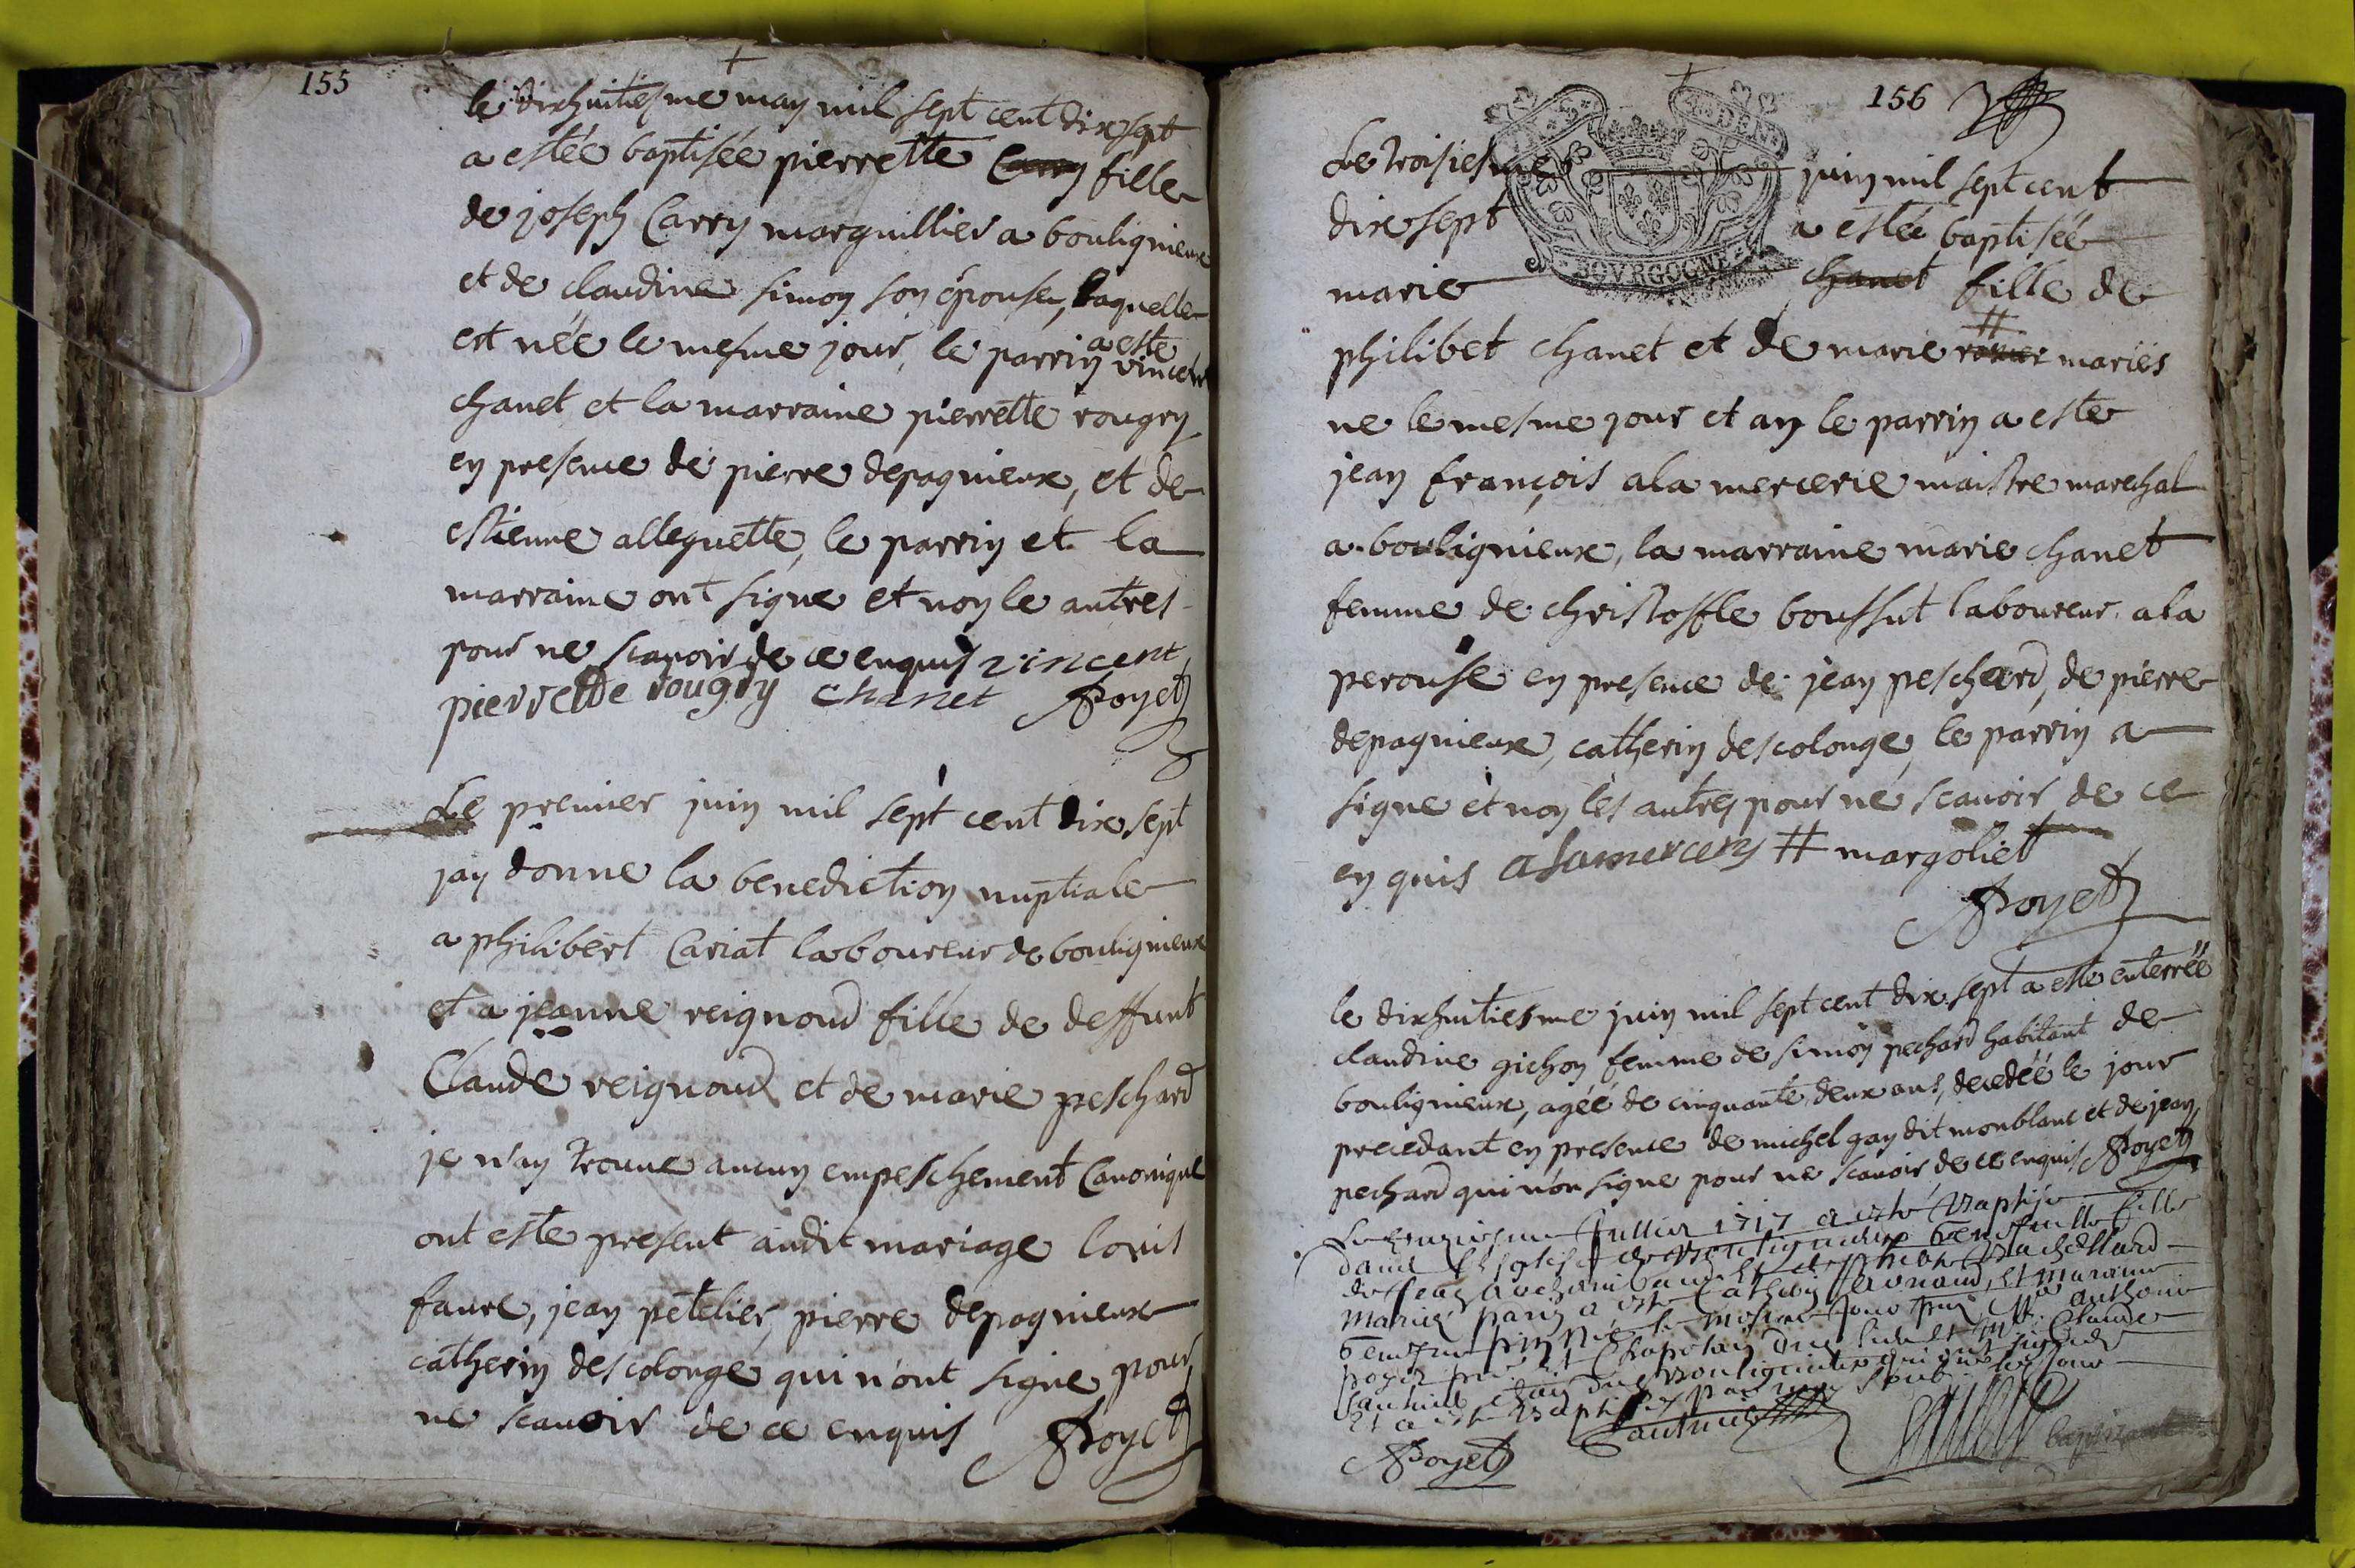 155
le dixhuitiesme may mil sept cent dix sept
a estée baptisée pierrette Carry fille
de joseph Carry marguillier a boulignieux
et de claudine simon son épouse, laquelle
est née le mesme jour, le parrin a este vincent
chanet et la marraine pierrette rougry
en presence de pierre depagnieux, et de
estienne alleguette, le parrin et la
marraine ont signe et non le autres
pour ne scavoir de ce enquis vincent
pierrette rougry chanet APoyet
Le premier juin mil sept cent dix sept
jay donne la benediction nuptiale
a philibert Cariat laboureur de boulignieux
et a jeanne reignoud fille de deffunt
Claude reignoud et de marie peschard
je n'ay trouve aucun empeschement Canonique
ont este present audit mariage louis
faure, jean petelier, pierre depagnieux
catherin descolonge qui n'ont signe pour
ne scauoir de ce enquis APoyet
156
DENI
BOVRGOGNE
Le troisiesme juin mil sept cent
dix sept a estée baptisée
marie chanet fille de
philibet chanet et de marie # mariés
ne le mesme jour et an le parrin a este
jean françois alamercerie maistre marechal
a boulignieux, la marraine marie chanet
femme de christoffle boussut laboureur a la
perouse en presence de jean peschard, de pierre
depagnieux, catherin descolonge, le parrin a
signe et non les autres pour ne scauoir de ce
en quis alamercery # margoliet
APoyet
le dixhuitiesme juin mil sept cent dix sept a este enterrée
claudine gichon femme de simon pechard habitant de
boulignieux, agée de cinquante deux ans, decedée le jour
precedant en presence de michel gay dit monblanc et de jean
pechard qui n'on signe pour ne scauoir de ce enquis APoyet
Juillet 1717 a esté Baptisé
dans l'Eglise de Bouligneux fille
de Jean et de
Mariés parin a esté Cathein et Maraine
le mesme jour Anthoine
poyet Claude
Bouligneux qui ont signé
Et a esté Baptisé par
APoyet